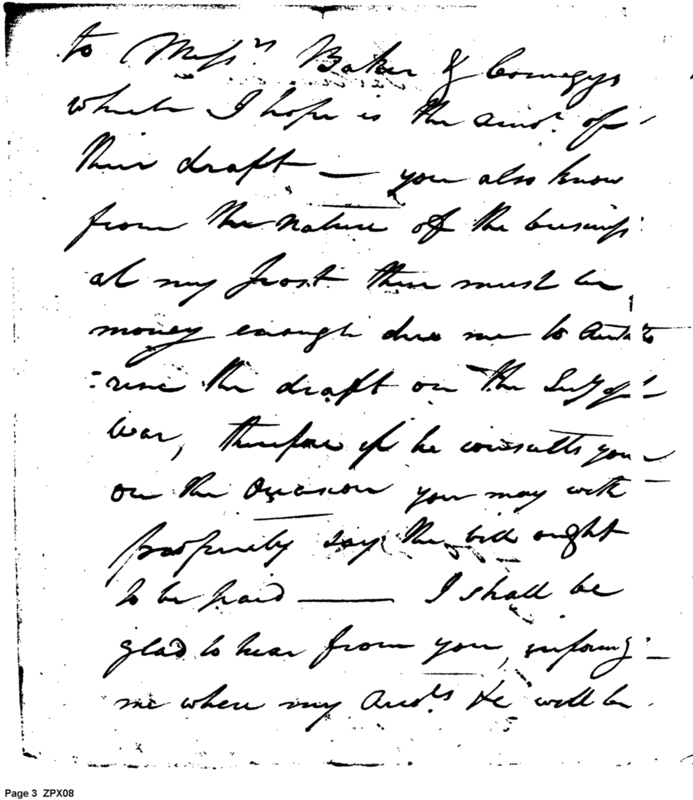 to Mess.rs Baker & Comegys
which I hope is the amo.t of
their draft — you also know
from the nature of the business
at my post there must be
money enough due me to
the draft on the Sec.y of
War, therefore if he consults you
on the Occasion you may with
propriety say the bill ought
to be paid — I shall be
glad to hear from you, inform.g
me where my &c will be
Page 3 ZPX08